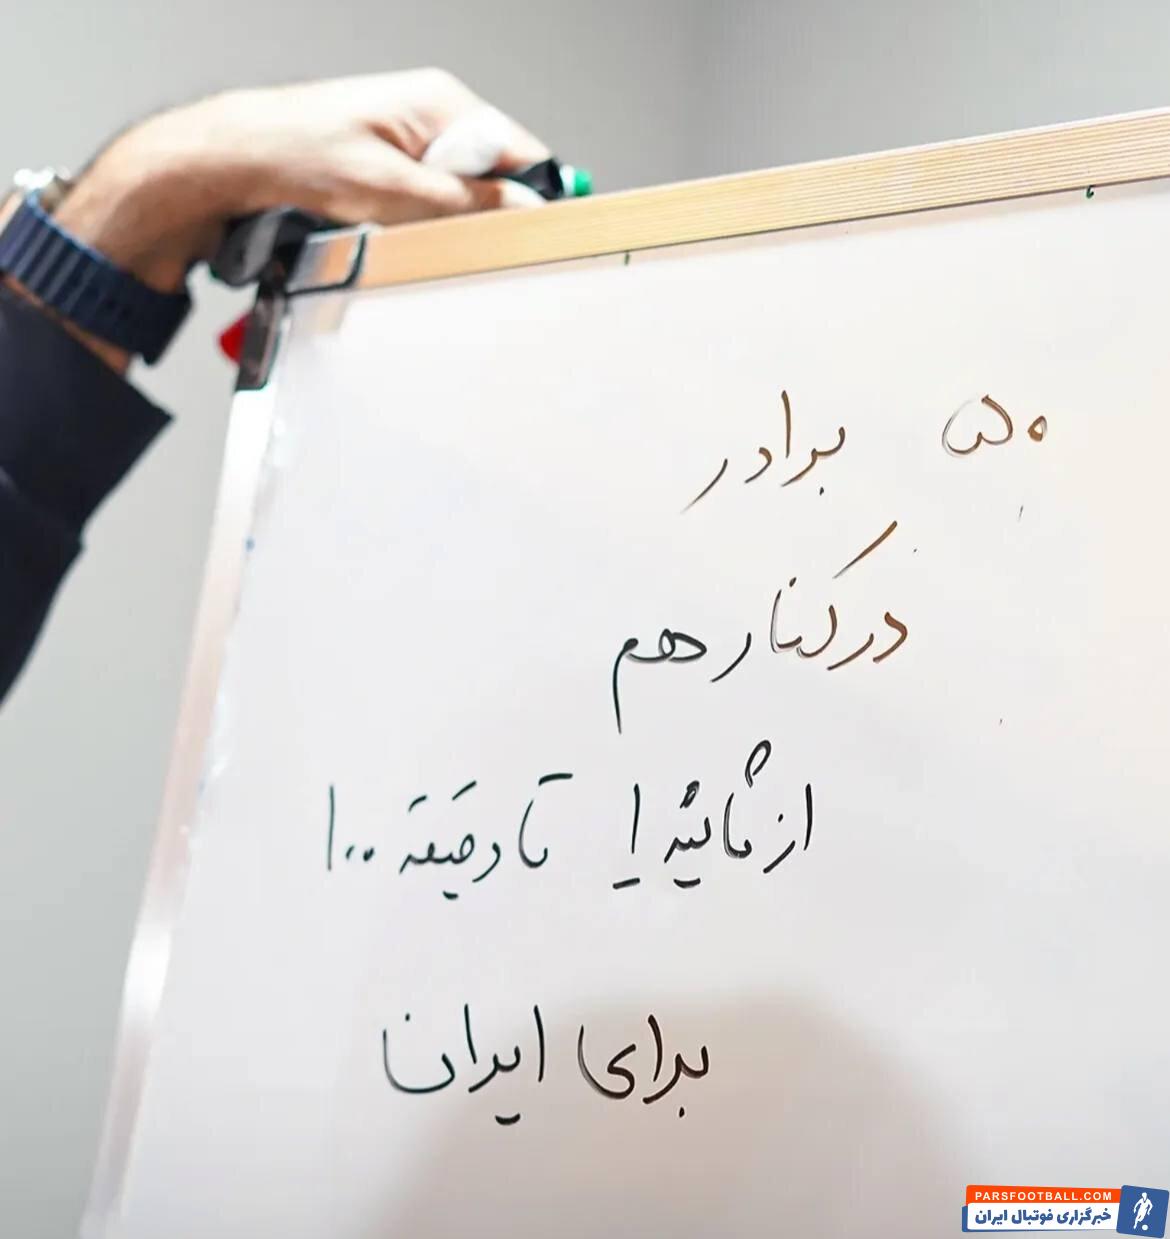 ۵۰ برادر
در کنار هم
از ثانیه ۱ تا دقیقه ۱۰۰
برای ایران
PARSFOOTBALL.COM
خبرگزاری فوتبال ایران